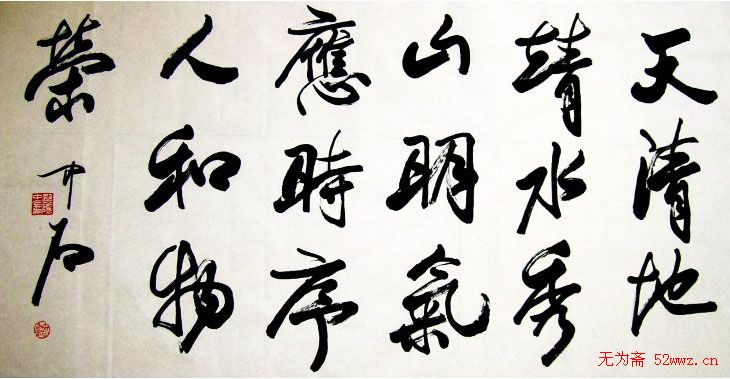 天清地
靖水秀
山明氣
應時序
人和物
榮
中石
无为斋 52wwz.cn